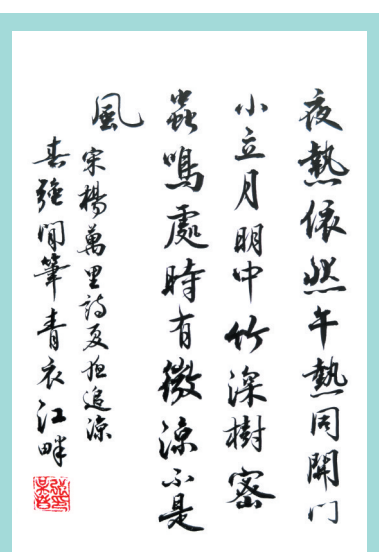 夜熱依然午熱同開門
小立月明中竹深樹密
蟲鳴處時有微涼不是
風
宋楊萬里詩夏夜追涼
春強閒筆青衣江畔